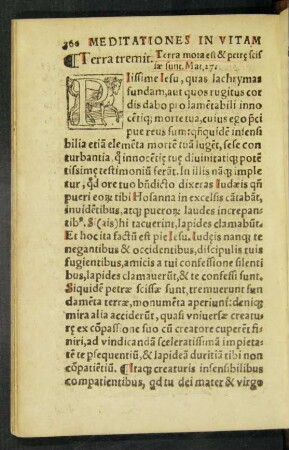 360 MEDITATIONES IN VITAM
¶Terra tremit. Terra mota est & petrę scis
sæ sunt. Mat.27.
PIissime Iesu, quas lachrymas
fundam, aut quos rugitus cor
dis dabo pro lamētabili inno
cētiq; morte tua, cuius ego pci
pue reus sum: qñquidē insensi
bilia etiā elemēta mortē tuā lugēt, sese con
turbantia, q̃ innocētię tuę diuinitatiq; potē
tissime testimoniū ferāt. In illis nāq; imple
tur, qd ore tuo bñdicto dixeras Iudæis qñ
pueri eorū tibi Hosanna in excelsis cātabāt,
inuidētibus, atq; puerorū laudes increpan-
tib⁹. S(ais) hi tacuerint, lapides clamabūt.
Et hoc ita factū est pie Iesu. Iudęis nanq; te
negantibus & occidentibus, discipulis tuis
fugientibus, amicis a tui confessione silenti
bus, lapides clamauerūt, & te confessi sunt.
Siquidē petræ scissæ sunt, tremuerunt fun
damēta terræ, monumēta aperiunt: deniq;
mira alia acciderūt, quasi vniuersæ creatu
rę ex cōpassione suo cū creatore cuperēt fi-
niri, ad vindicandā sceleratissimā impietā-
tē te psequentiū, & lapideā duritiā tibi non
cōpatiētiū. ¶Itaq; creaturis insensibilibus
compatientibus, qd tu dei mater & virgo